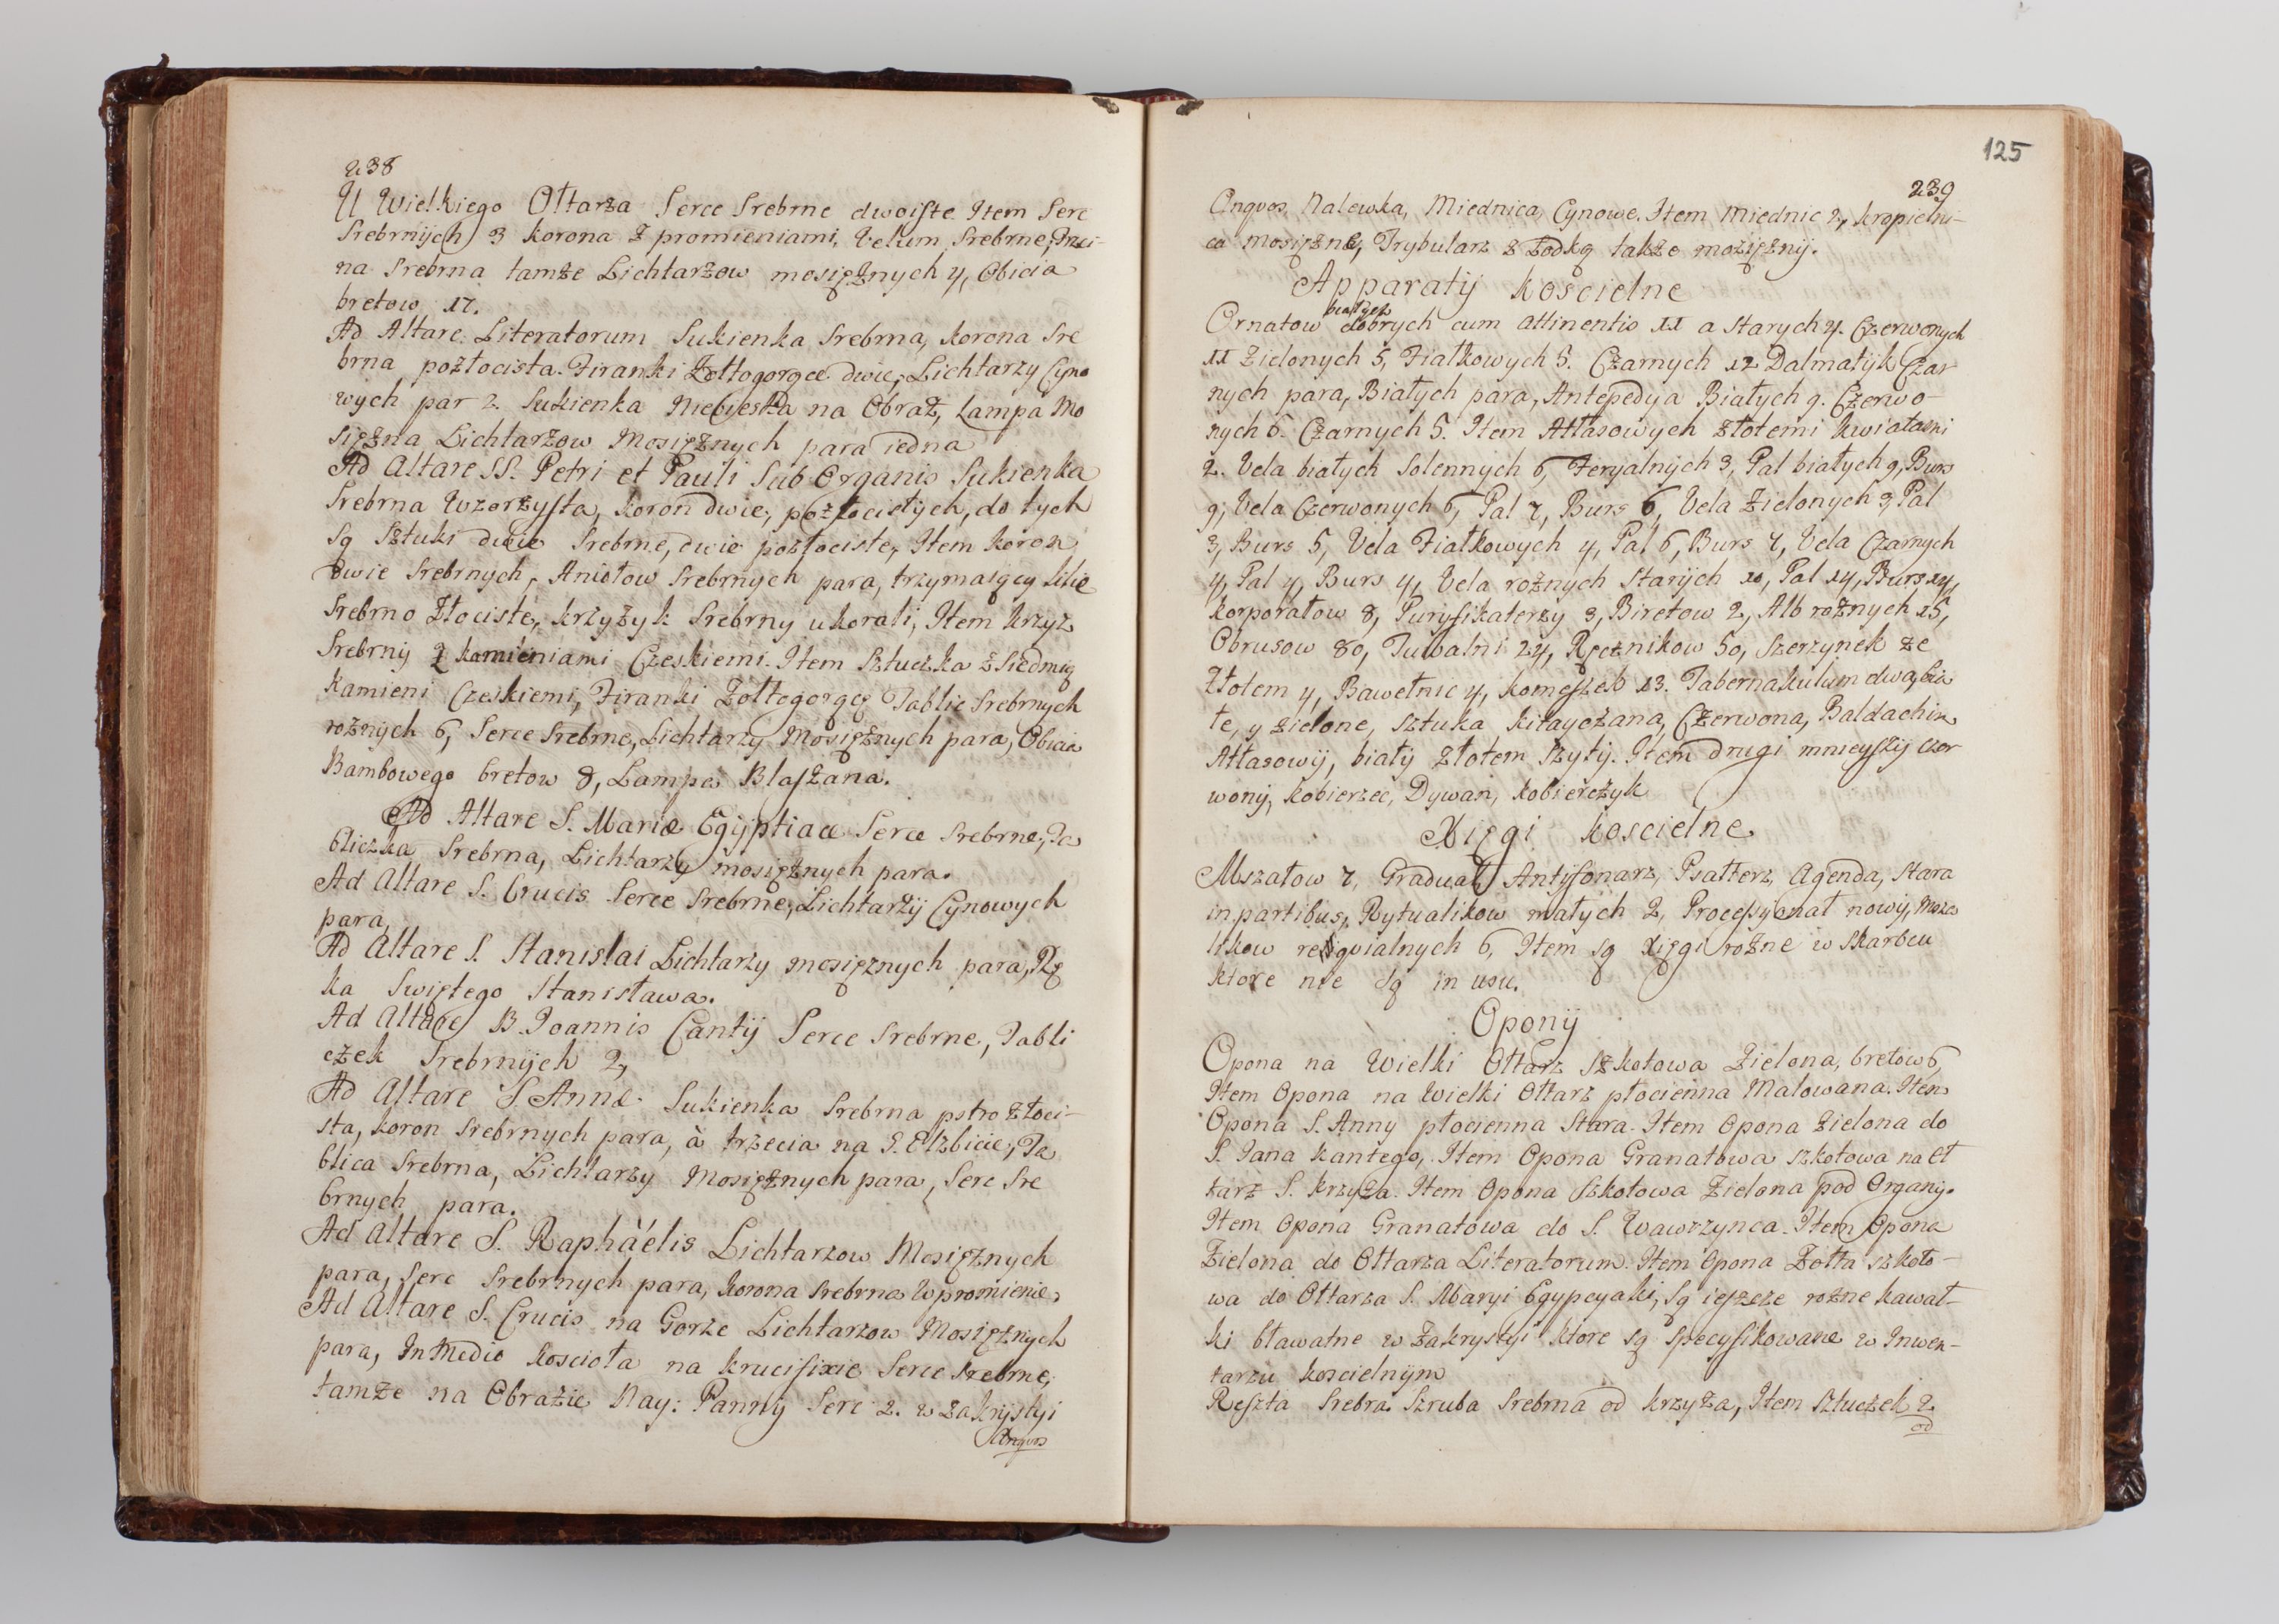 238
U Wielkiego Ołtarza Serce Srebrne dwoiste Item Serc
Srebrnych 3 korona z promieniami, Velum Srebrne, Trzci-
na Srebrna tamże Lichtarzow mosiężnych 4, Obicia
bretow 17.
Ad Altare Literatorum Sukienka Srebrna, korona Sre
brna pozłocista. Firanki Żołtogorące dwie, Lichtarzy Cyno
wych par 2. Sukienka Niebieska na Obraz, Lampa Mo
siężna Lichtarzow Mosiężnych para iedna
Ad Altare SS. Petri et Pauli Sub Organis Sukienka
Srebrna Wzorzysta, koron dwie, pozłocistych, do tych
Są Sztuki dwie Srebrne, dwie pozłociste, Item koron
dwie Srebrnych, Aniołow Srebrnych para, trzymaiący lilie
Srebrno Złociste, krzyżyk Srebrny u korali, Item krzyż
Srebrny z kamieniami Czeskiemi. Item Sztuczka z Siedmią
Kamieni Czeskiemi, Firanki Żołtogorące Tablic Srebrnych
rożnych 6, Serce Srebrne, Lichtarzy Mosiężnych para, Obicia
Bambowego bretow 8, Lampa Blaszana.
Ad Altare S. Mariæ Egÿptiacæ Serce Srebrne, Ta
bliczka Srebrna, Lichtarzy mosiężnych para.
Ad Altare S. Crucis Serce Srebrne, Lichtarzÿ Cynowych
para,
Ad Altare S. Stanislai Lichtarzy mosiężnych para, Rę
ka Swiętego Stanisława.
Ad Altare B. Joannis Cantÿ Serce Srebrne, Tabli
czek Srebrnÿch 2,
Ad Altare S. Annæ Sukienka Srebrna pstro złoci-
sta, koron Srebrnych para, à trzecia na S. Elzbicie, Ta
blica Srebrna, Lichtarzy Mosiężnych para, Serc Sre
brnych para.
Ad Altare S. Raphaëlis Lichtarzow Mosiężnych
para, Serc Srebrnych para, korona Srebrna w promienie,
Ad Altare S. Crucis na Gorze Lichtarzow Mosiężnych
para, In Medio kosciołа na krucifixie Serce Srebrne,
tamże na Obrazie Nay: Panny Serc 2. w zakrystyi
Ongvos
125
239
Ongvos Nalewka, Miednica Cynowe. Item Miednic 2, kropielni-
ca mosiężne, Trybularz z Łodką także mozięzny.
Apparatÿ koscielne
białych
Ornatow dobrych cum attinentis 11 a Starych 4. Czerwonych
11 Zielonych 5, Fiałkowych 5. Czarnych 12 Dalmatÿk Czar
nych para, Białych para, Antepedya Białych 9. Czerwo-
nych 6. Czarnych 5. Item Atłasowych złotemi kwiatami
2. Vela białych Solennych 6, Feryalnych 3, Pal białych 9, Burs
9, Vela Czerwonych 6, Pal 7, Burs 6, Vela Zielonych 3, Pal
3, Burs 5, Vela Fiałkowych 4, Pal 6, Burs 7, Vela Czarnych
4, Pal 4, Burs 4, Vela rożnych Starÿch 10, Pal 14, Burs 14,
Korporałow 8, Puryfikaterzy 3, Biretow 2, Alb rożnych 15,
Obrusow 80, Tuwalni 24, Ręcznikow 50, Szerzynek ze
Złotem 4, Bawełnic 4, komeszek 13. Tabernakulum dwa, bia
łe, y zielone, Sztuka kitayczana, Czerwona, Baldachin
Atłasowÿ, białÿ złotem Szytÿ. Item drugi mnieyszÿ czer
wonÿ, kobierzec, Dywan, kobierczyk
Xięgi koscielne
Mszałow 7, Graduał, Antyfonarz, Psałterz, Agenda, Stara
in partibus, Rytualikow małych 2, Processyonał nowÿ, Msza
likow requialnych 6, Item Są xięgi rożne w Skarbcu
ktore nie Są in usu.
Oponÿ
Opona na Wielki Ołtarz Szkotowa Zielona, bretow 6,
Item Opona na Wielki Ołtarz płocienna Malowana. Item
Opona S. Anny płocienna Stara. Item Opona Zielona do
S. Jana Kantego, Item Opona Granatowa Szkotowa na Oł
tarz S. krzyża. Item Opona Szkotowa Zielona pod Organÿ.
Item Opona Granatowa do S. Wawrzynca. Item Opona
Zielona do Ołtarza Literatorum. Item Opona Żołta szkoto-
wa do Ołtarza S. Maryi Egypcyaki, Są ieszcze rożne kawał-
ki bławatne w Zakrystyi ktore Są Specyfikowane w Inwen-
tarzu koscielnÿm
Reszta Srebra Szruba Srebrna od krzyża, Item Sztuczek 2
od